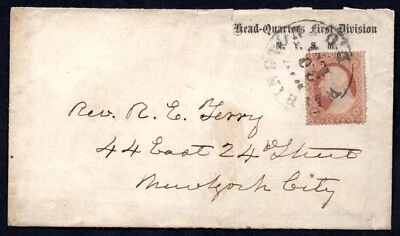 Head-Quarters First Division
N. Y. S. M.
Rev. R. E. Terry
44 East 24th Street
New York City